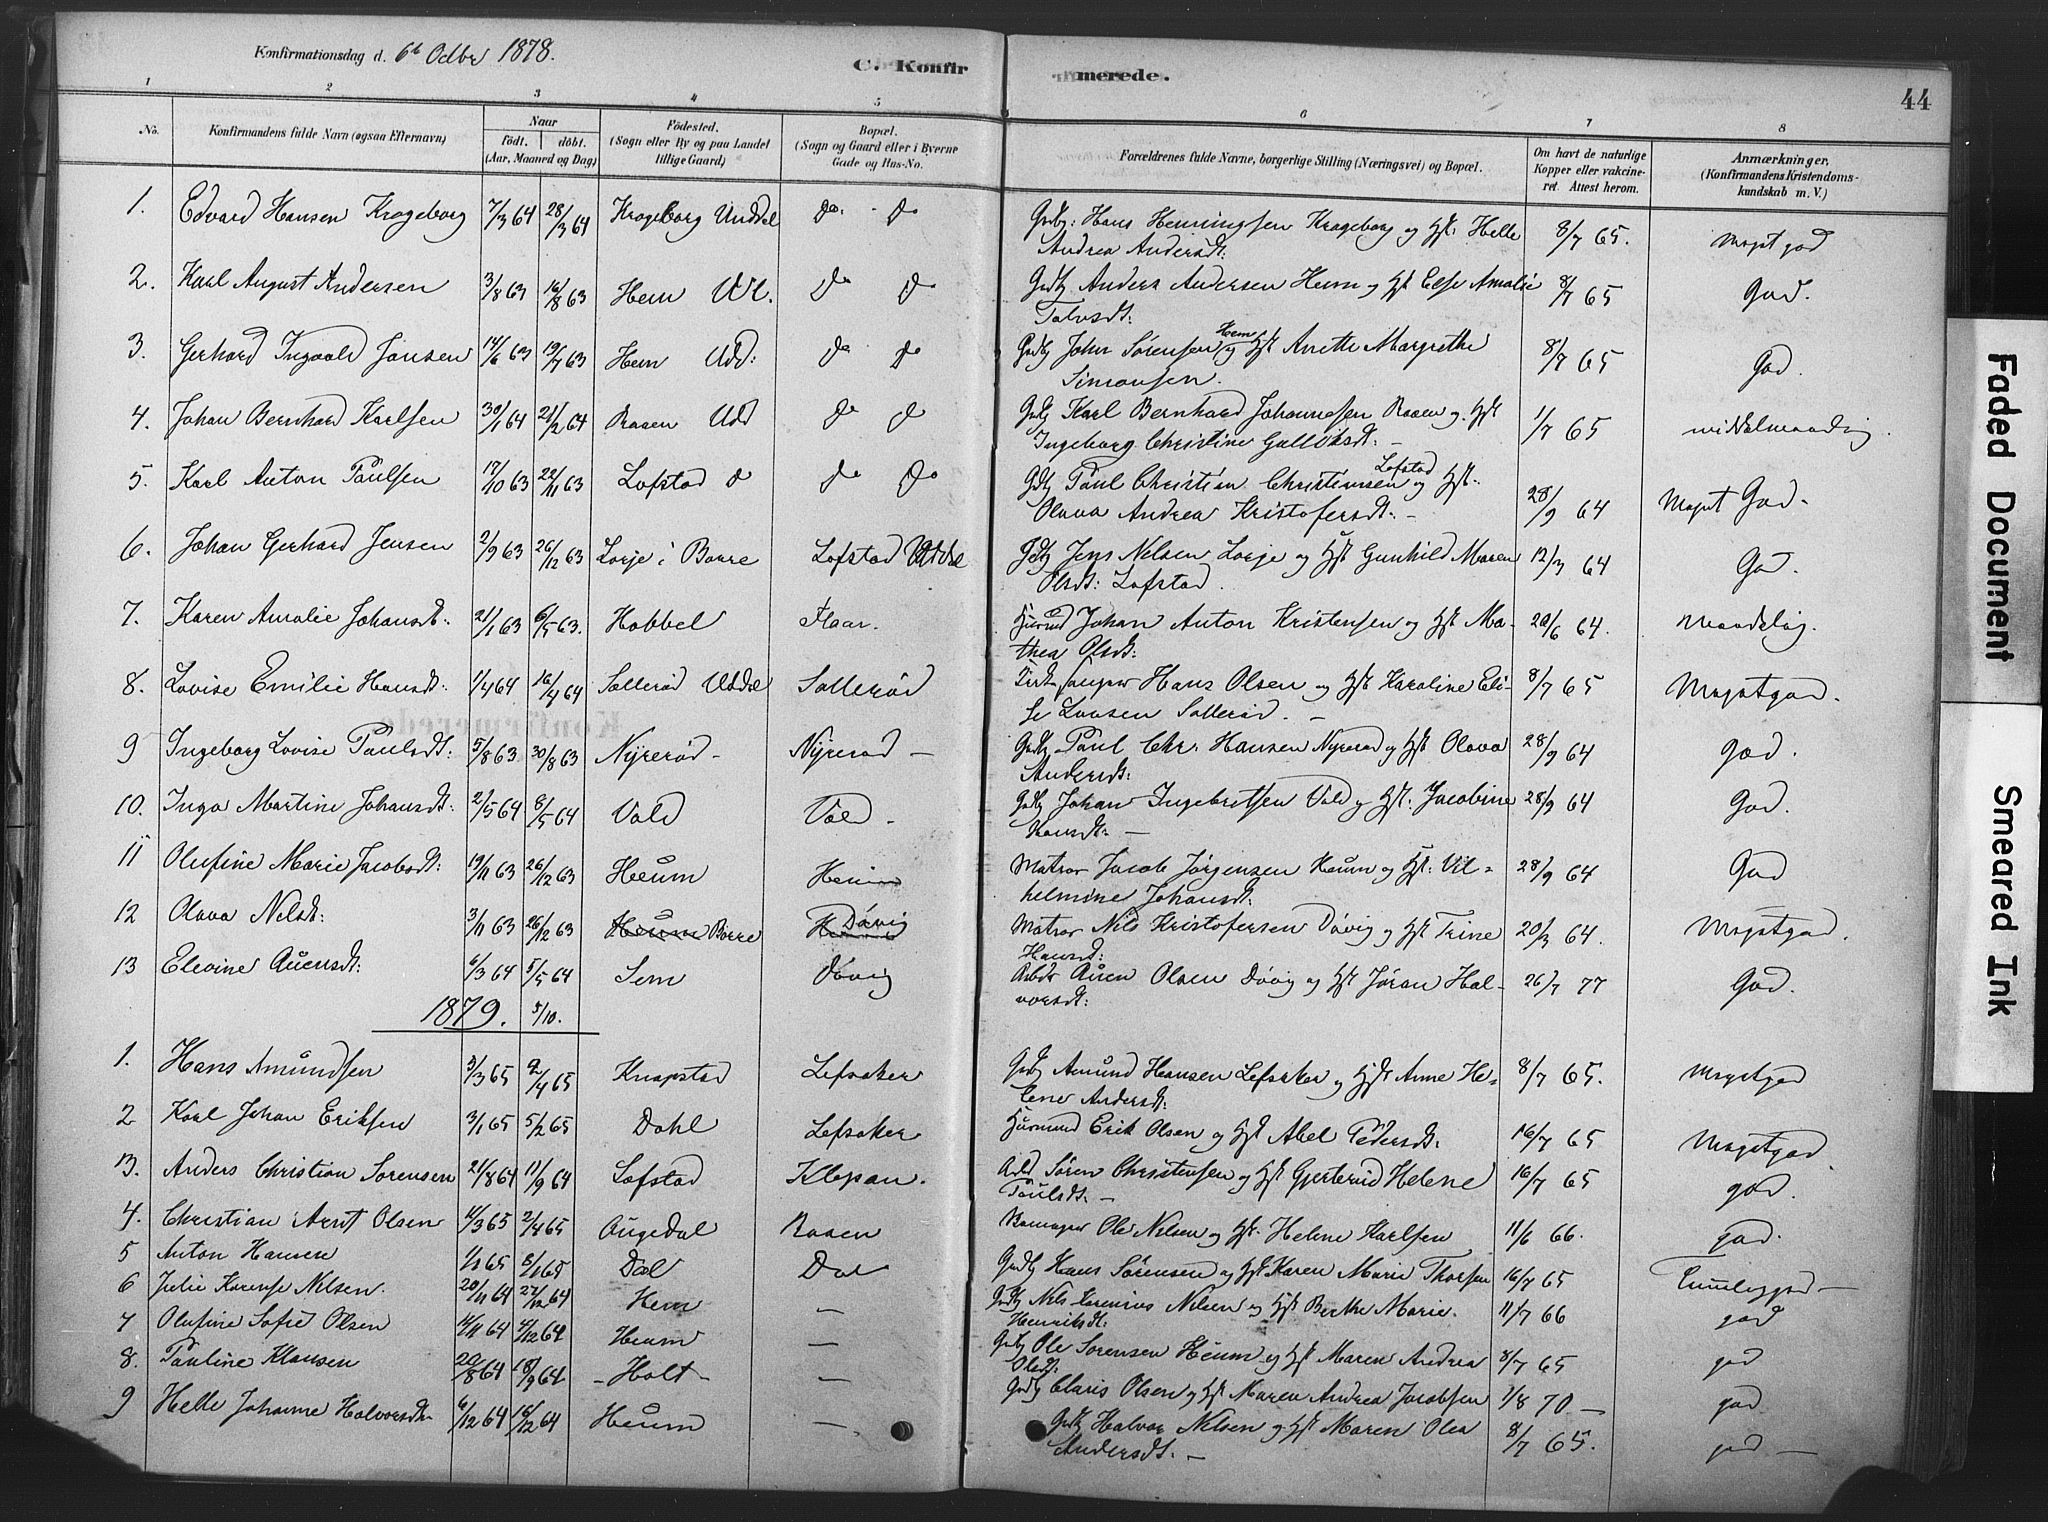 Konfirmationsdag d. 6te Octbr 1878.
C. Konfirmerede.
44
1 2 3 4 5 6 7 8
No. Konfirmandens fulde Navn (ogsaa Efternavn) Naar födt. döbt. (Aar, Maaned og Dag) Födested. (Sogn eller By og paa Landet tillige Gaard) Bopæl. (Sogn og Gaard eller i Byerne Gade og Hus-No. Forældrenes fulde Navne, borgerlige Stilling (Næringsvei) og Bopæl. Om havt de naturlige Kopper eller vakcineret. Attest herom. Anmærkninger. (Konfirmandens Kristendomskundskab m. V.)
1. Edvard Hansen Krogeborg 7/3 64 28/3 64 Krogeborg Unddal do. do Gdbr: Hans Henningsen Krogeborg og Hst: Helle
Andrea Andersdt: 8/7 65. Megetgod
2. Karl August Andersen 3/8 63 16/8 63 Hem Ud. do do Gdbr Anders Andersen Heum og Hst Else Amalie
Tolvsdt: 8/7 65 God.
3. Gerhard Ingvald Jonsen 14/6 63 19/7 63 Hem Udd: do do Gdbr John Sørensen Hem og Hst Anette Margrethe
Simonsen. 8/7 65 God.
4. Johan Bernhard Karlsen 30/1 64 21/2 64 Raaen Udd do do Gdbr Karl Bernhard Johannesen Raaen og Hst
Ingeborg Christine Gulliksdt: – 1/7 65 middelmaadig.
5. Karl Anton Paulsen 17/10 63 22/11 63 Lofstad do do do Gdbr Paul Christian Christiansen Lofstad og Hst.
Olava Andrea Kristofersdt: – 28/9 64 Meget God.
6. Johan Gerhard Jensen 2/9 63 26/12 63 Lorje i Borre Lofstad Uddal Gdbr Jens Nilsen Lorje og Hst Gunhild Maren
Olsdt: Lofstad. 12/3 64 God.
7. Karen Amalie Johansdt: 21/1 63 6/5 63. Hobbel Flaar. Husmd Johan Anton Kristensen og Hst Mathea
Olsdt: 20/6 64. Maadelig.
8. Lovise Emilie Hansdt: 1/4 64 16/4 64 Sollerød Uddal Sollerød Kirkesanger Hans Olsen og Hst Karoline Elise
Lovsen Sollerød. – 8/7 65 Megetgod.
9 Ingeborg Lovise Paulsdt: 5/8 63 30/8 63 Nyrerød – Nyrerød – Gdbr Paul Chr. Hansen Nyrerød og Hst Olava
Andersdt: 28/9 64 God.
10. Inga Martine Johansdt: 2/5 64 8/5 64 Vold Vold – Gdbr Johan Ingebretsen Vold og Hst: Jacobine
Hansdt: – 28/9 64 God.
11 Olufine Marie Jacobsdt: 19/11 63 26/12 63 Heum Heum Matros Jacob Jørgensen Heum og Hst: Vilhelmine
Johansdt: 28/9 64 God
12 Olava Nilsdt: 3/11 63 26/12 63 Heum Borre Døvig Matros Nils Kristofersen Døvig og Hst Trine
Hansdt: 20/3 64. Megetgod.
13 Elevine Auensdt: 6/3 64 5/5 64 Sem Døvig Arbdr Auen Olsen Døvig og Hst Jøran Halvorsdt: 26/7 77 God.
1879. 5/10.
1. Hans Amundsen 3/3 65 9/4 65 Knapstad Lefsaker Gdbr Amund Hansen Lefsaker og Hst Anne Helene
Andersdt: 8/7 65. Megetgod
2 Karl Johan Eriksen 3/1 65 5/2 65 Dahl Lefsaker Husmnd Erik Olsen og Hst Abel Pedersdt: 16/7 65 Megetgod.
13. Anders Christian Sorensen 21/8 64 11/9 64 Lofstad Klopan. Arbd Sören Christensen og Hst Gjertrud Helene
Paulsdt: – 16/7 65 god.
4. Christian Arnt Olsen 11/3 65 2/4 65 Augedal Raaen Ole Nilsen og Hst. Helene Karlsen 11/6 66. god.
5 Anton Hansen 1/1 65 8/1 65 Dal Dal Gdbr Hans Sørensen og Hst Karen Marie Thorsen 16/7 65 Temmeliggod –
6 Julie Nilsen. 20/11 64 27/12 64 Hem – Gdbr Nils Nilsen og Hst Berthe Marie
Henriksdt: 11/7 66 god
7 Olufine Sofie Olsen 14/11 64 4/12 64 Heum – Gdbr Ole Sorensen Heum og Hst Maren Andrea
Olsdt: 8/7 65 god
8. Pauline Klausen 20/8 64 18/9 64 – Holt – – Gdbr Claris Olsen og Hst Maren Andrea Jacobsen 1/8 70 – god
9 Helle Johanne Halvorsdtr 6/12 64 16/12 64 Heum –. Gdbr Halvor Nilsen og Hst Maren Olea
Andersdt: – 8/7 65. god –
Faded Document
Smeared Ink